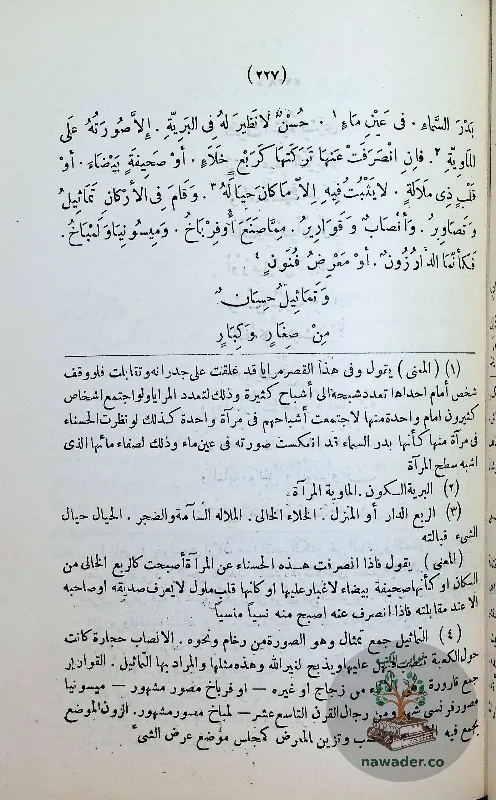 (٢٢٧)
بَدْرَ السَّمَاءِ . فى عَيْنِ مَاءٍ ١ . حُسْنٌ لا نَظِيرَ لَهُ فِى البَرِيَّةِ . إِلاَّ صُورَتُهُ عَلَى
المَاوِيَّةِ ٢ . فَإِنِ انْصَرَفَتْ عَنْهَا تَرَكَتْهَا كَرَبْعٍ خَلَاءٍ . أوْ صَحِيفَةٍ بَيْضَاءَ . أوْ
قَلْبٍ ذِى مَلَالَةٍ . لا يَثْبُتُ فِيهِ إِلاَّ مَا كَانَ حِيَالَهُ ٣ . وَقَامَ فِى الأَرْكَانِ تَمَاثِيلُ
وَتَصَاوِيرُ . وَأَنْصَابٌ وَقَوَارِيرُ . مِمَّا صَنَعَ أُوفِرْبَاخُ . وَمِيسُونِيَا وَلَمْبَاخُ .
فَكَأَنَّمَا الدَّارُ زُونٌ . أوْ مَعْرِضُ فُنُونٍ ٤
وَتَمَاثِيلُ حِسَانٌ
مِنْ صِغَارٍ وَكِبَارٍ
(١) ( المعنى ) يقول وفى هذا القصر مرايا قد علقت على جدرانه وتقابلت فلو وقف
شخص أمام احداها تعدد شبحه الى أشباح كثيرة وذلك لتعدد المرايا ولو اجتمع اشخاص
كثيرون امام واحدة منها لاجتمعت أشباحهم فى مرآة واحدة كذلك لو نظرت الحسناء
فى مرآة منها كأنها بدر السماء قد انعكست صورته فى عين ماء وذلك لصفاء مائها الذى
اشبه سطح المرآة
(٢) البرية السكون . الماوية المرآة
(٣) الربع الدار أو المنزل . الخلاء الخالى . الملاله السآمة والضجر . الحيال حيال
الشىء قبالته
(المعنى ) يقول فاذا انصرفت هذه الحسناء عن المرآة أصبحت كالربع الخالى من
السكان او كأنها صحيفة بيضاء لاغبار عليها او كأنها قلب ملول لا يعرف صديقه او صاحبه
الا عند مقابلته فاذا انصرف عنه اصبح منه نسياً منسياً
(٤) التماثيل جمع تمثال وهو الصورة من رخام ونحوه . الانصاب حجارة كانت
حول الكعبة تنصب فيهل عليها ويذبح لغير الله وهذه مثلها والمراد بها التماثيل . القوارير
جمع قارورة من زجاج او غيره — او فرباخ مصور مشهور — ميسونيا
مصور فرنسى شهير ومن رجال القرن التاسع عشر — لمباخ مصور مشهور . الزون الموضع
يجمع فيه وتزين المعرض كمجلس موضع عرض الشىء
nawader.co